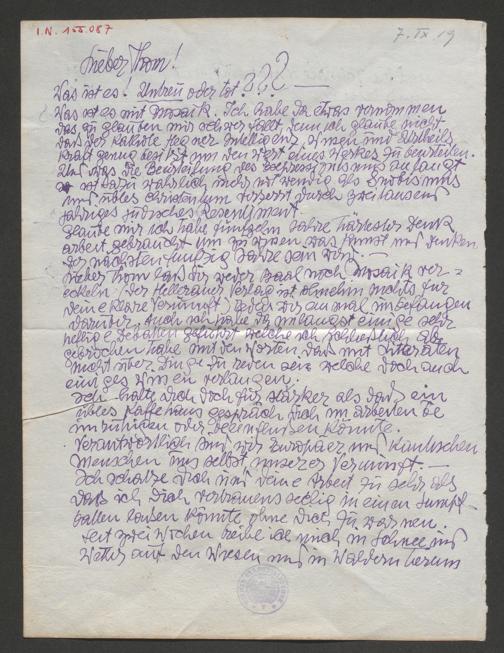 I.N. 155.087
7. IX 19
Lieber Thom!
Was ist es? Untreu oder tot ???—
Was ist es mit Mosaik. Ich habe da etwas vernommen
das zu glauben mir schwer fällt, denn ich glaube nicht
daß der Intelligenz, Wissen und Urteils
kraft genug besitzt um den Wert eines Werkes zu beurteilen.
Und was die Beurteilung des anlangt
so ist dazu wahrlich mehr notwendig als
und übles Christentum versetzt durch zweitausend
jähriges jüdisches Resentiment.
Glaube mir ich habe fünfzehn Jahre härtester Denk
arbeit gebraucht um zu wissen was Kunst und Denken
der nächsten fünfzig Jahre sein wird.—
Lieber Thom laß dir weder Saal noch Mosaik ver=
eckeln (der Hellerauer Verlag ist ohnehin nichts für
deine klare Vernunft) rede dir einmal unbefangen
darüber. Auch ich habe da unlängst einige sehr
heftige Debatten geführt welche ich schließlich ab
gebrochen habe mit den Worten, daß mit Litteraten
nicht über Dinge zu reden sei welche doch auch
einiges Wissen verlangen.
Ich halte dich doch für stärker als daß ein
übles Kaffehaus gespräch dich im arbeiten be
unruhigen oder beeinflussen könnte.
Verantwortlich sind wir Europäer und kantischen
Menschen uns selbst, unserer Vernunft.—
Ich schätze dich und deine Arbeit zu sehr als
daß ich dich vertrauensseelig in einen Sumpf
hatten lassen könnte, ohne dich zu warnen.
Seit zwei Wochen treibe ich mich in Schnee und
Wetter auf den Wiesen und in Wäldern herum